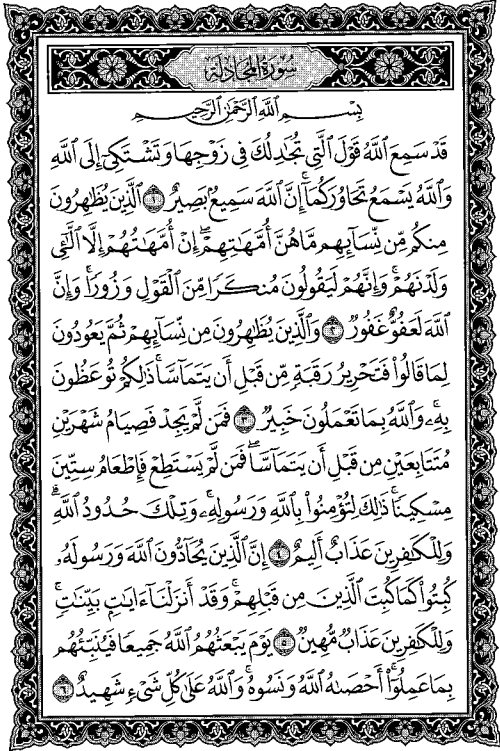 سُورَةُ المُجَادلَة
بِسْمِ اللَّهِ الرَّحْمَٰنِ الرَّحِيمِ
قَدْ سَمِعَ اللَّهُ قَوْلَ الَّتِي تُجَادِلُكَ فِي زَوْجِهَا وَتَشْتَكِي إِلَى اللَّهِ
وَاللَّهُ يَسْمَعُ تَحَاوُرَكُمَا ۚ إِنَّ اللَّهَ سَمِيعٌ بَصِيرٌ ١ الَّذِينَ يُظَاهِرُونَ
مِنكُم مِّن نِّسَائِهِم مَّا هُنَّ أُمَّهَاتِهِمْ ۖ إِنْ أُمَّهَاتُهُمْ إِلَّا اللَّائِي
وَلَدْنَهُمْ ۚ وَإِنَّهُمْ لَيَقُولُونَ مُنكَرًا مِّنَ الْقَوْلِ وَزُورًا ۚ وَإِنَّ
اللَّهَ لَعَفُوٌّ غَفُورٌ ٢ وَالَّذِينَ يُظَاهِرُونَ مِن نِّسَائِهِمْ ثُمَّ يَعُودُونَ
لِمَا قَالُوا فَتَحْرِيرُ رَقَبَةٍ مِّن قَبْلِ أَن يَتَمَاسَّا ۚ ذَٰلِكُمْ تُوعَظُونَ
بِهِ ۚ وَاللَّهُ بِمَا تَعْمَلُونَ خَبِيرٌ ٣ فَمَن لَّمْ يَجِدْ فَصِيَامُ شَهْرَيْنِ
مُتَتَابِعَيْنِ مِن قَبْلِ أَن يَتَمَاسَّا ۖ فَمَن لَّمْ يَسْتَطِعْ فَإِطْعَامُ سِتِّينَ
مِسْكِينًا ۚ ذَٰلِكَ لِتُؤْمِنُوا بِاللَّهِ وَرَسُولِهِ ۚ وَتِلْكَ حُدُودُ اللَّهِ ۗ
وَلِلْكَافِرِينَ عَذَابٌ أَلِيمٌ ٤ إِنَّ الَّذِينَ يُحَادُّونَ اللَّهَ وَرَسُولَهُ
كُبِتُوا كَمَا كُبِتَ الَّذِينَ مِن قَبْلِهِمْ ۚ وَقَدْ أَنزَلْنَا آيَاتٍ بَيِّنَاتٍ ۚ
وَلِلْكَافِرِينَ عَذَابٌ مُّهِينٌ ٥ يَوْمَ يَبْعَثُهُمُ اللَّهُ جَمِيعًا فَيُنَبِّئُهُم
بِمَا عَمِلُوا ۚ أَحْصَاهُ اللَّهُ وَنَسُوهُ ۚ وَاللَّهُ عَلَىٰ كُلِّ شَيْءٍ شَهِيدٌ ٦